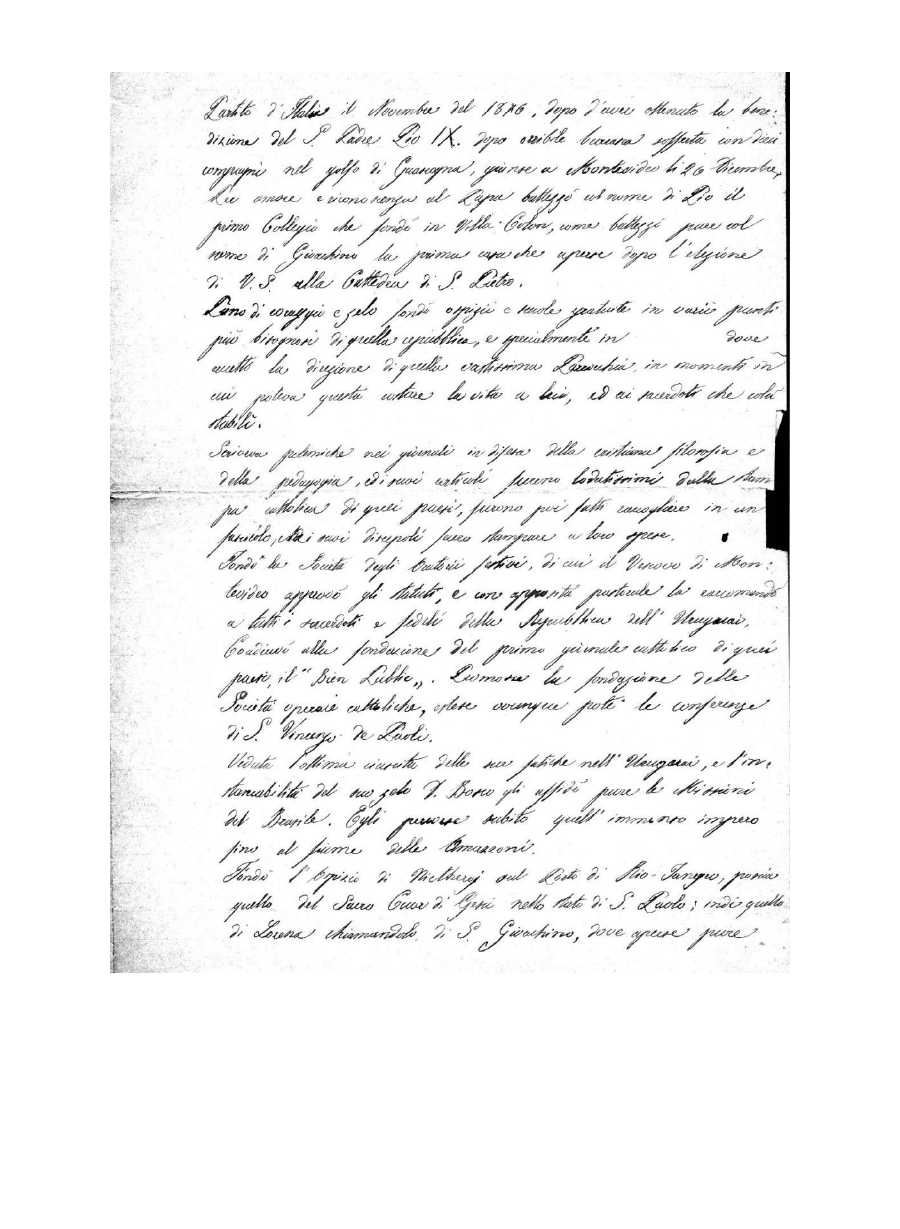 Partito d'Italia il Novembre del 1876, dopo d'aver ottenuto la bene:
dizione del S. Padre Pio IX. dopo orribile burrasca sofferta con dieci
compagni nel golfo di Guascogna, giunse a Montevideo li 26 Dicembre,
Per amore e riconoscenza al Papa battezzò col nome di Pio il
primo Collegio che fondò in Villa-Colon, come battezzò pure col
nome di Gioachino la prima casa che aperse dopo l'elezione
di V. S. alla Cattedra di S. Pietro.
Pieno di coraggio e zelo fondò ospizii e scuole gratuite in varii punti
più bisognosi di quella repubblica, e specialmente in dove
accettò la direzione di quella vastissima Parrocchia, in momenti in
cui poteva questa costare la vita a lui, ed ai sacerdoti che colà
stabilì.
Scriveva polemiche nei giornali in difesa della cristiana filosofia e
della pedagogia, ed i suoi articoli furono lodatissimi dalla stam
pa cattolica di quei paesi, furono poi fatti raccogliere in un
fascicolo, ed i suoi discepoli fecero stampare a loro spese.
Fondò la Società degli Oratorii festivi, di cui il Vescovo di Mon:
tevideo approvò gli statuti, e con apposita pastorale la raccomandò
a tutti i sacerdoti e fedeli della Repubblica dell'Uruguai.
Coadiuvò alla fondazione del primo giornale cattolico di quei
paesi, il "Bien Publico„. Promosse la fondazione delle
Società operaie cattoliche, estese ovunque potè le conferenze
di S. Vincenzo de Paoli.
Veduta l'ottima riuscita delle sue fatiche nell'Uruguai, e l'in:
stancabilità del suo zelo D. Bosco gli affidò pure le Missioni
del Brasile. Egli percorse subito quell'immenso impero
fino al fiume delle Amazzoni.
Fondò l'Ospizio di Nictheroy sul Porto di Rio-Janeyro, poscia
quello del Sacro Cuor di Gesù nello stato di S. Paolo; indi quello
di Lorena chiamandolo di S. Gioachino, dove aperse pure